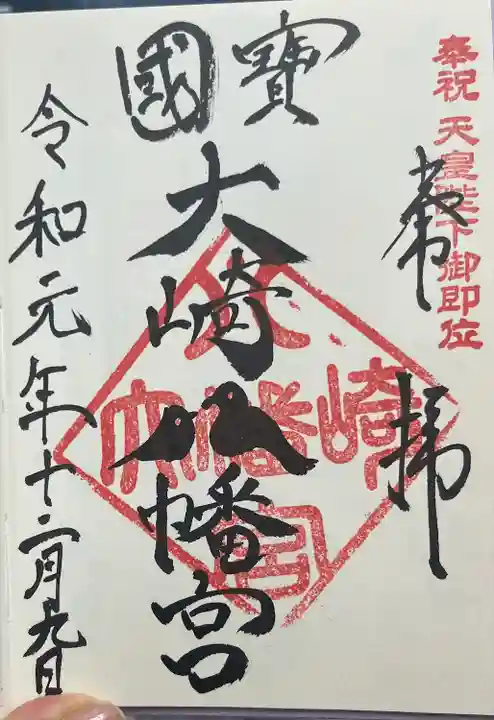 奉祝 天皇陛下御即位
奉拝
寳國
大崎八幡宮
大崎八幡宮
令和元年十二月九日